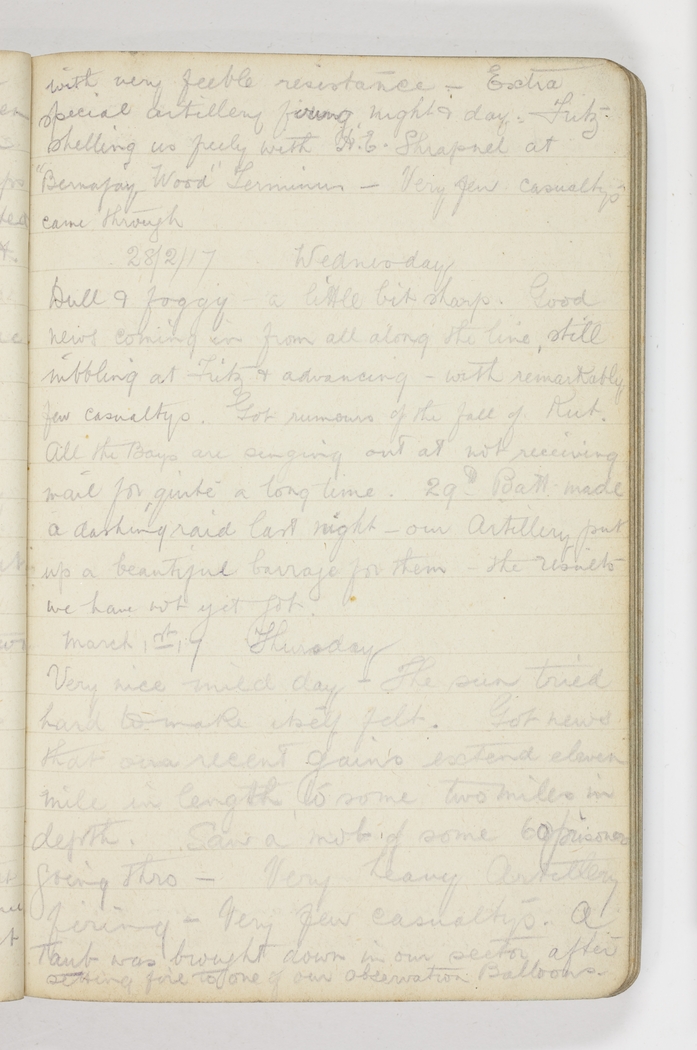 with very feeble resistance - Extra
special artillery firing night & day. Fritz
shelling us freely with H.E. Shrapnel at
"Bernafay Wood" Terminus - Very few casualtys
came through
28/2/17 Wednesday
Dull & foggy - a little bit sharp. Good
news coming in from all along the line, still
nibbling at Fritz & advancing - with remarkably
few casualtys. Got rumours of the fall of Kut.
All the Boys are singing out at not receiving
mail for quite a long time. 29th Batt made
a dashing raid last night - our Artillery put
up a beautiful barrage for them - the results
we have not yet got.
March 1st 17 Thursday
Very nice mild day - The sun tried
hard to make itself felt. Got news
that our recent gains extend eleven
mile in length to some two miles in
depth. Saw a mob of some 60 prisoners
going thro - Very heavy Artillery
firing - Very few casualtys. A
Taub was brought down in our sector after
setting fire to one of our observation Balloons.